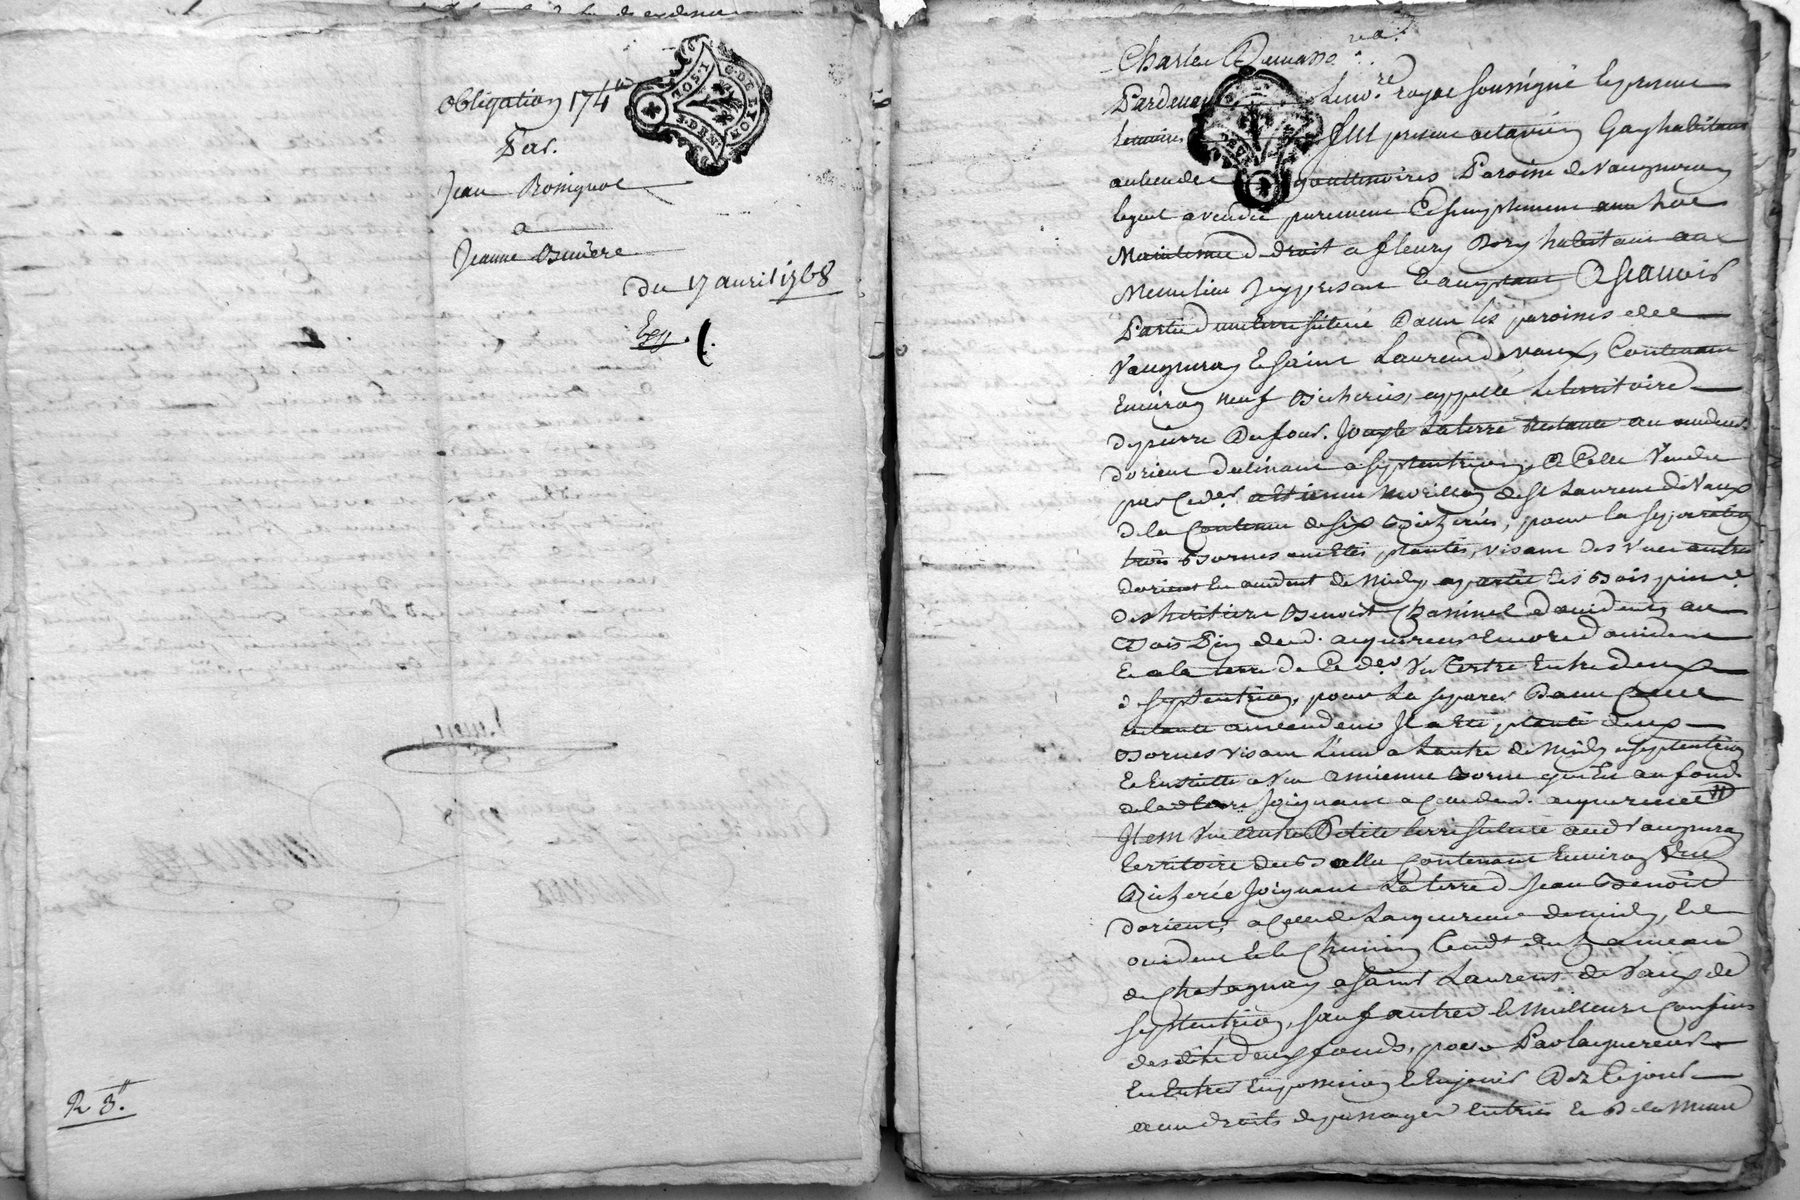 obligation 174
Par.
Jean Rossignol
a
Jeanne Buiere
du 17 avril 1768
Exp.
G. DE LYON
1. SOL
DEN.
R 3.
Pardevant Le no.re royal soussigné
temoins fut present octavien Gay habitant
au lieu de gouttenoires Paroisse de Vaugneray
lequel a vendu purement Et simplement
Maintenue de droit a fleury Bory habitant au
Meme lieu Icy present Et acceptant Asçauoir
Partie d'une terre scituée Dans les paroisses de
Vaugneray Et Saint Laurent de vaux, Contenant
Environ neuf Bicherées, appellé Le territoire
de pierre Dufour. Joignt La terre Restante au vendeur
d'orient declinant a septentrion, Et Celle Vendue
par Ced.er a Etienne morillon de St Laurent de Vaux
de la Contenue de six Bicherées, pour la separation
trois Bornes ont Eté plantés, visant des unes autres
d'orient En occident de midy, a partie les Bois pins
des heritiers Benoist Chassinel d'occident, au
Bois Pin dud. acquereur Encore d'occident
Et a la terre de Ced.er Un Tertre Entredeux
de septentrion, pour La separer D'auec Celle
restante au vendeur Il a Eté planté deux
Bornes visant L'une a L'autre de midy a septentrion
Et Ensuitte a Une Ancienne Borne qui Est au fond
de la terre Joignant a Celle dud. acquereur
Item Une autre Petite terre scituée aud. Vaugneray
territoire du Contenant Environ Une
Bicherée Joignant La terre de Jean Benoist
d'orient, a Celle de L'acquereur de midy, Et
occident Et le Chemin tend.t du hameau
de Chatagnay a Saint Laurent de Vaux de
septentrion, sauf autres Et Meilleurs Confins
desdits deux fonds, pour Par l'acquereur
En Entrer En possession Et En Jouir Dez Ce jour
aux droits de passages Entrées Et de la Meme